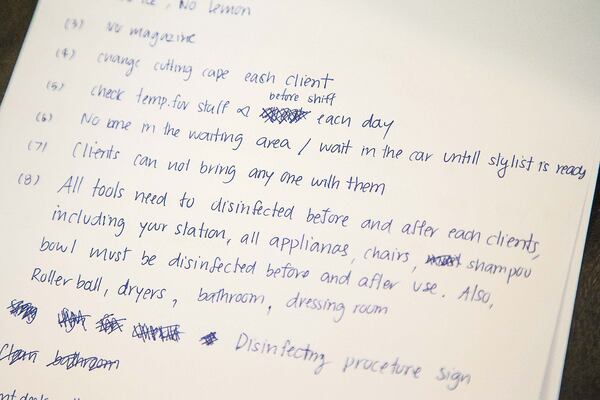 ice, No lemon
(3) No magazine
(4) change cutting cape each client
(5) check temp. for staff before shift each day
(6) No one in the waiting area / wait in the car untill stylist is ready
(7) Clients can not bring any one with them
(8) All tools need to disinfected before and after each clients,
including your station, all appliances, chairs, shampoo
bowl must be disinfected before and after use. Also,
Roller ball, dryers, bathroom, dressing room
Disinfecting proceture sign
Clean bathroom